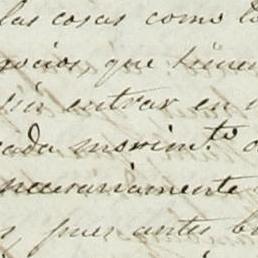 las cosas como to
gocios, que tienen
sin entrar en
cada movim.to
necesariamente
s, pues antes b